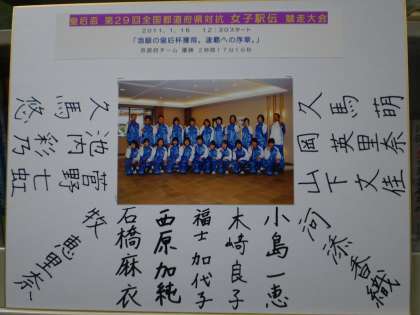 皇后盃 第29回全国都道府県対抗 女子駅伝 競走大会
2011.1.16 12:30スタート
の皇后杯獲得、連覇への序章。」
京都府チーム 優勝 2時間17分16秒
久馬 萌
岡 英里奈
山下 文佳
河添香織
小島 一恵
木崎 良子
福士 加代子
西原 加純
石橋麻衣
牧 恵里奈
菅野 七虹
池内 彩乃
久馬 悠